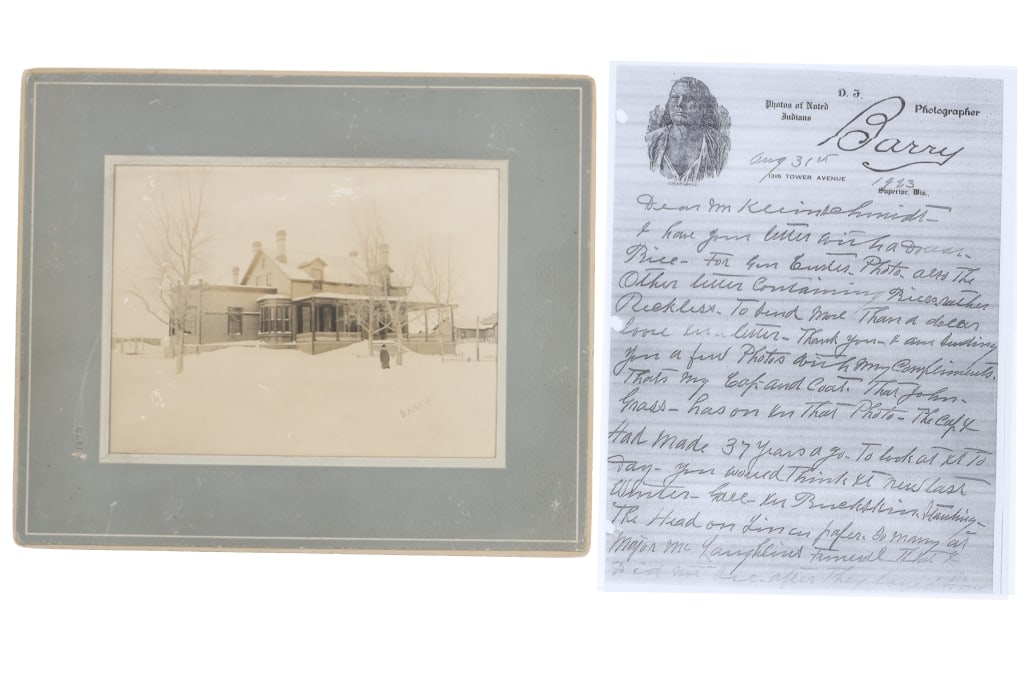 BARRY
D. F.
Barry
Photographer
Photos of Noted
Indians
Aug 31st
1923
1316 TOWER AVENUE
Superior, Wis.,
Dear Mr Kleinschmidt-
I have your letter with a Dollar
Bill- For Gen Custer Photo. also the
Other letter Containing Bills rather
Reckless. To Send More Than a dollar
loose in a letter- Thank you- I am sending
you a few Photos with My Compliments.
Thats My Cap and Coat. That John-
Grass- has on in That Photo- The Cap I
Had Made 37 Years ago- To look at it To
day- you would Think it new last
Winter- Gall- in Buckskin Standing-
The Head on Linen paper. So many at
Major Mc Laughlins Funeral That I
did not See. after They